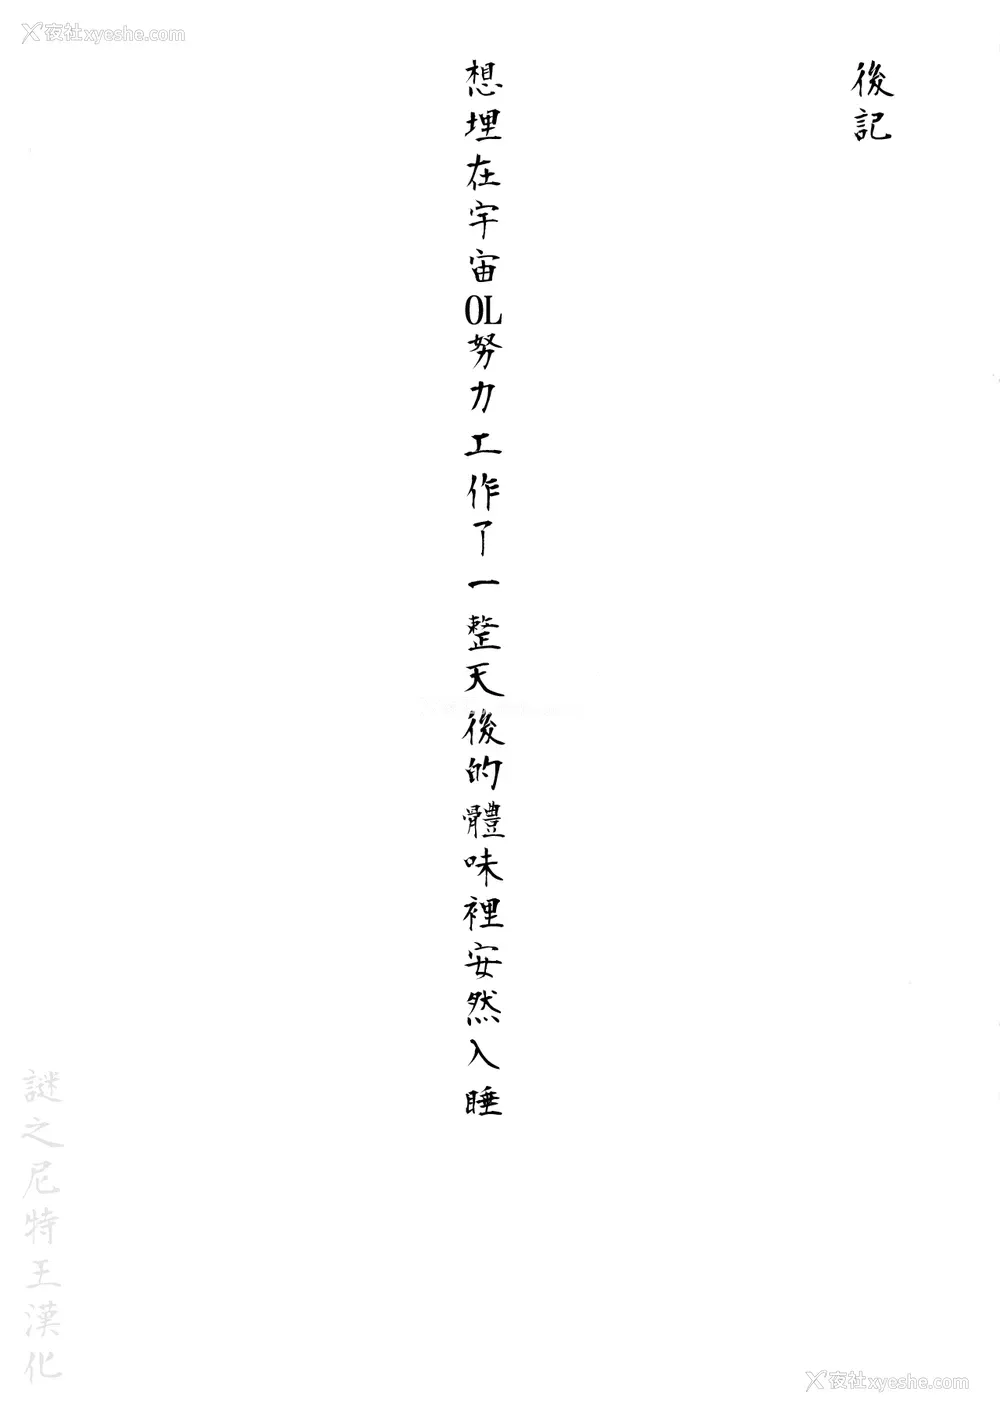 X夜社xyeshe.com
後記
想埋在宇宙OL努力工作了一整天後的體味裡安然入睡
謎之尼特王漢化
X夜社xyeshe.com